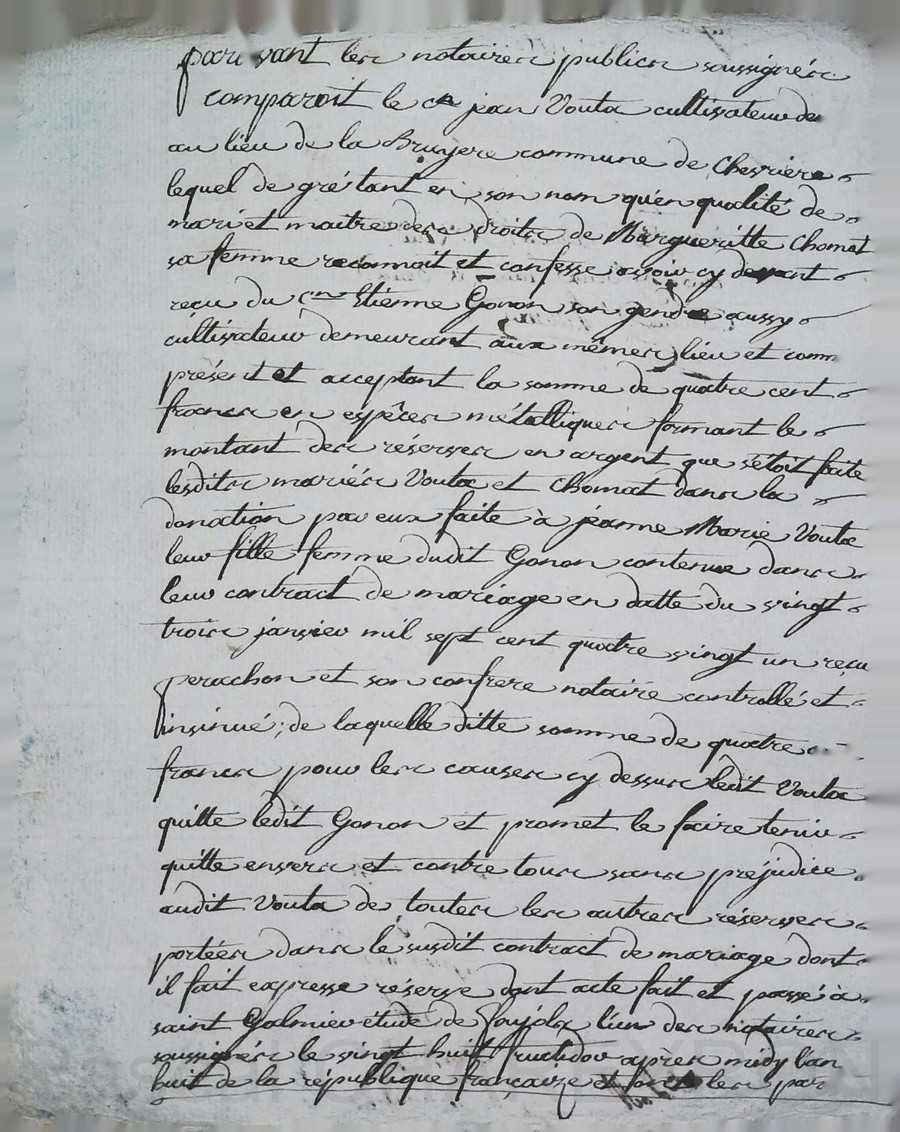 par vant les notaires publics soussignés
comparoit le cn jean Vouta cultivateur de
au lieu de la Bruyere commune de Chevriere
lequel de gré tant en son nom qu'en qualité de
mari et maitre des droits de Margueritte Chomat
sa femme reconnoit et confesse avoir cy devant
reçu du cen Etienne Gonon son gendre aussy
cultivateur demeurant aux mêmes lieu et comm
présent et acceptant la somme de quatre cent
francs en espêces métalliques formant le
montant des réserves en argent que s'étoit faite
lesdits mariés Vouta et Chomat dans la
donation par eux faite à jeanne Marie Vouta
leur fille femme dudit Gonon contenue dans
leur contract de mariage en datte du vingt
trois janvier mil sept cent quatre vingt un reçu
perachon et son confrere notaire controllé et
insinué ; de laquelle ditte somme de quatre
francs pour les causes cy dessus ledit Vouta
quitte ledit Gonon et promet le faire tenir
quitte envers et contre tous sans préjudice
audit Vouta de toutes les autres réserves
portées dans le susdit contract de mariage dont
il fait expresse réserve dont acte fait et passé à
saint Galmier étude de l'un des notaires
soussignés le vingt huit fructidor après midy l'an
huit de la république françaize et les par